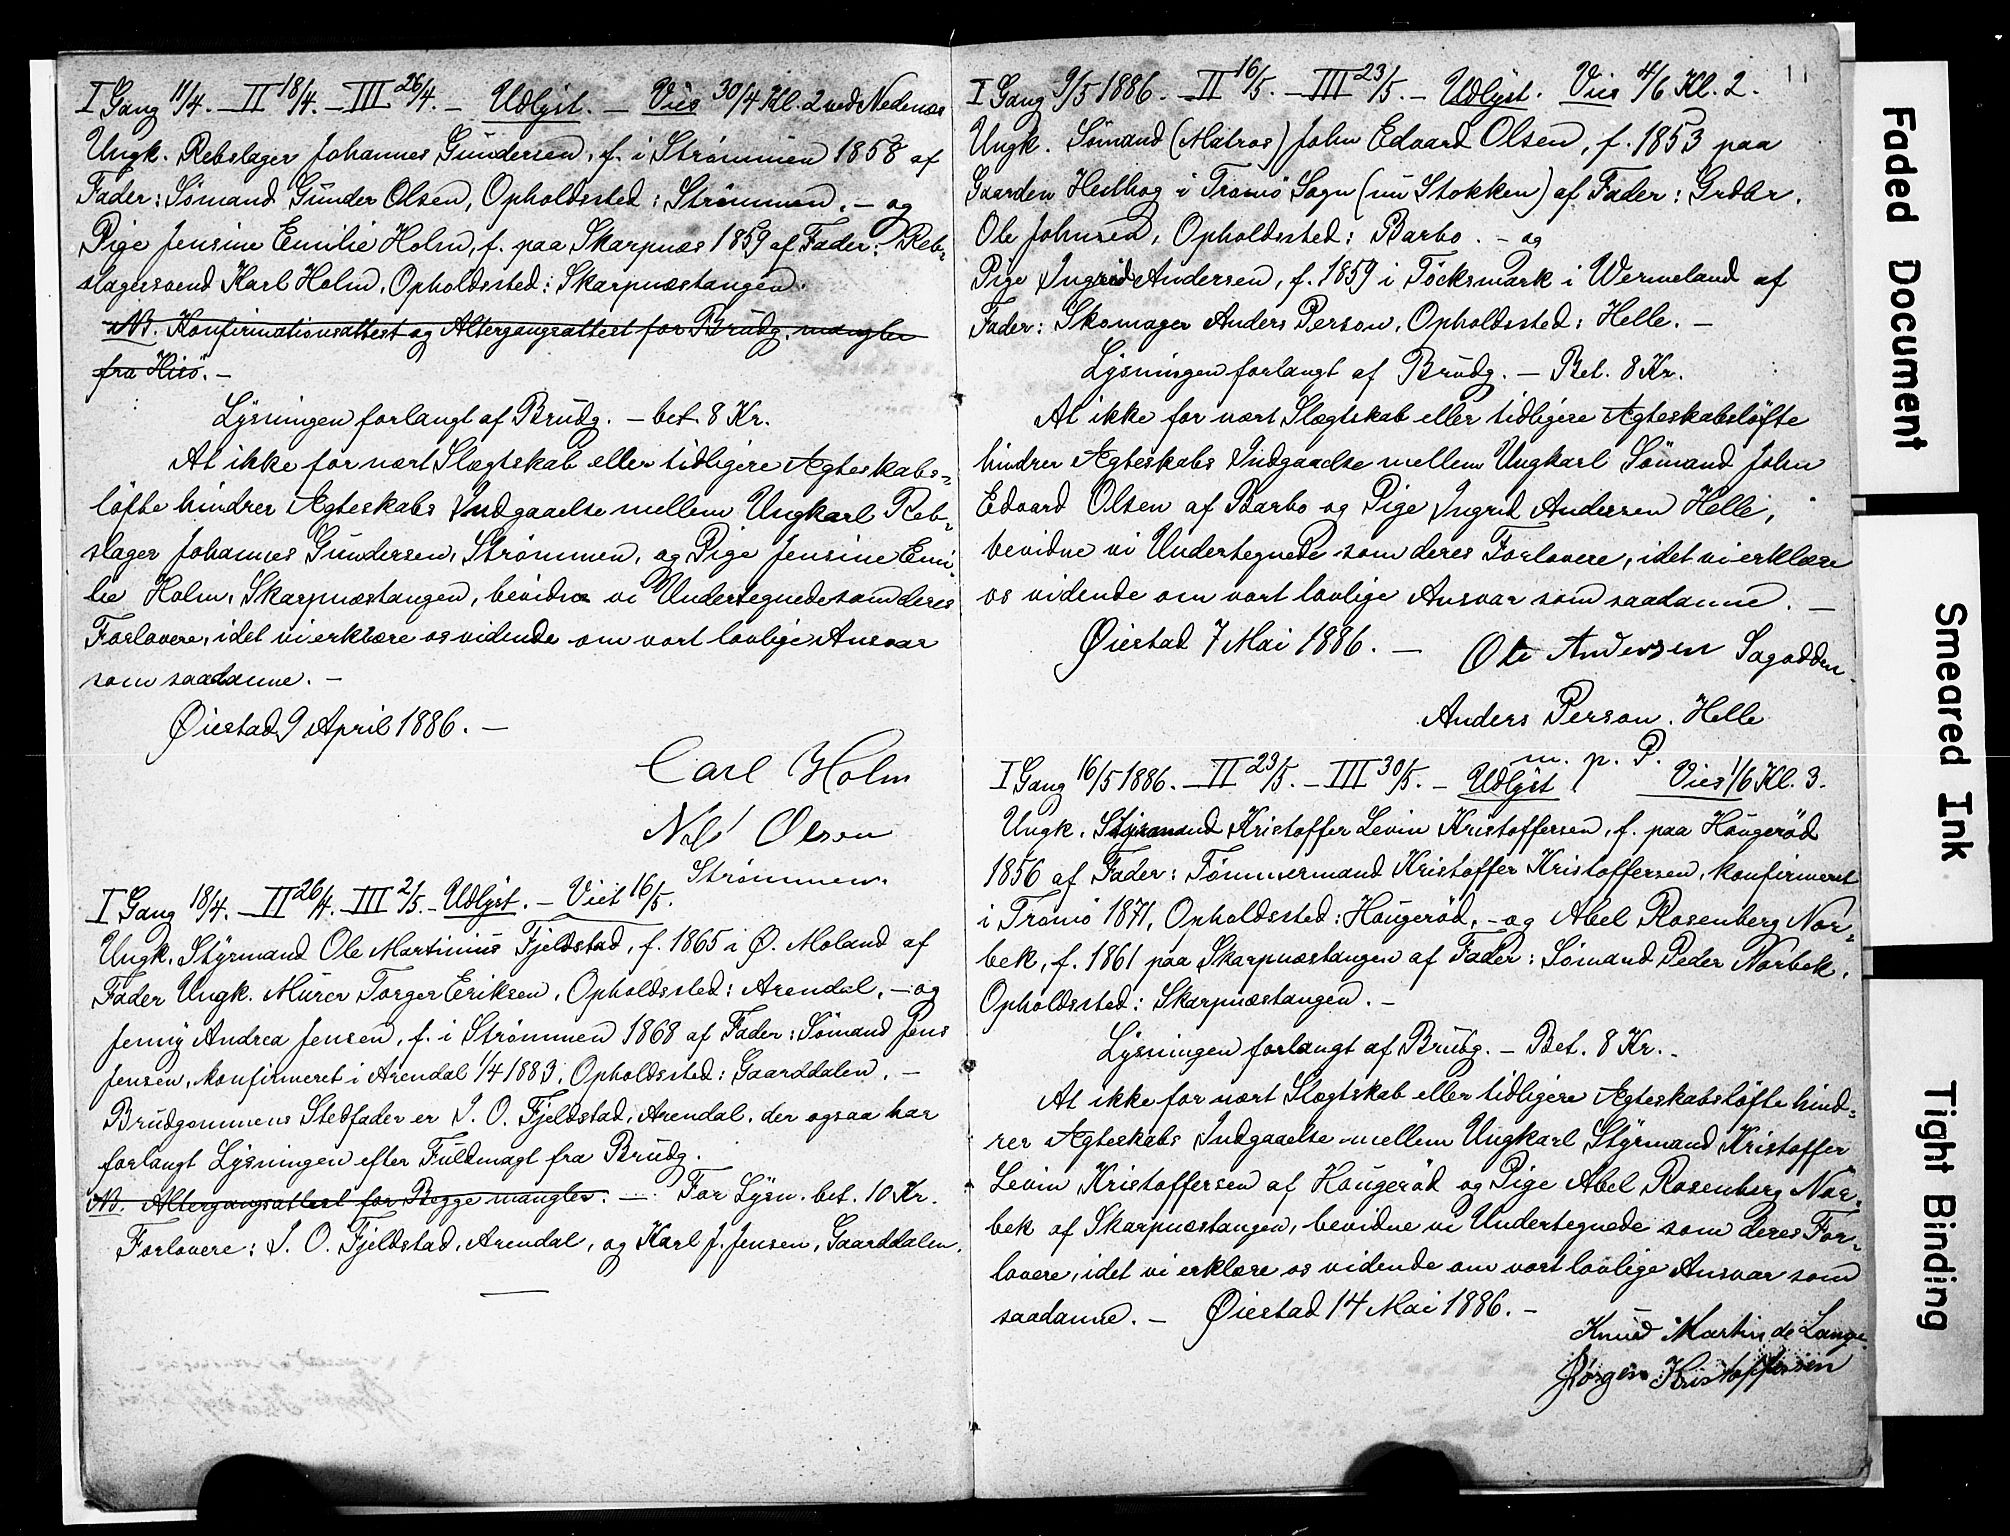 I Gang 11/4. – II 18/4. – III 26/4. – Udlyst. – Vies 30/4 Kl. 2 ved Nedenæs
Ungk. Rebslager Johannes Gundersen, f. i Strømmen 1858 af
Fader: Sømand Gunder Olsen, Opholdssted: Strømmen. – og
Pige Jensine Emilie Holm, f. paa Skarpnæs 1859 af Fader: Reb-
slagersvend Karl Holm, Opholdssted: Skarpnæstangen.
NB. Konfirmationsattest og Altergangsattest for Brudg. mangler
fra Hisö. –
Lysningen forlangt af Brudg. – bet. 8 Kr.
At ikke for nært Slægtskab eller tidligere Ægteskabs-
löfte hindrer Ægteskabs Indgaaelse mellem Ungkarl Reb-
slager Johannes Gundersen, Strømmen, og Pige Jensine Emi-
lie Holm, Skarpnæstangen, bevidne vi Undertegnede som deres
Forlovere, idet vi erklære os vidende om vort lovlige Ansvar
som saadanne. –
Øiestad 9 April 1886. –
Carl Holm
Nils Olsen
Strømmen.
I Gang 18/4. – II 26/4. – III 2/5. – Udlyst. – Viet 16/5.
Ungk. Styrmand Ole Martinius Fjeldstad, f. 1865 i Ø. Moland af
Fader Ungk. Murer Torger Eriksen, Opholdssted: Arendal, – og
Jenny Andrea Jensen, f. i Strømmen 1868 af Fader: Sømand Jens
Jensen, konfirmeret i Arendal 1/4 1883, Opholdssted: Gaarddalen. –
Brudgommens Stedfader er I. O. Fjeldstad, Arendal, der ogsaa har
forlangt Lysningen efter Fuldmagt fra Brudg.
NB. Altergangsattest for Begge mangler. – For Lysn. bet. 10 Kr.
Forlovere: I. O. Fjeldstad, Arendal, og Karl J. Jensen, Gaarddalen.
11
I Gang 9/5 1886. – II 16/5. – III 23/5. – Udlyst. Vies 4/6 Kl. 2.
Ungk. Sømand (Matros) John Edvard Olsen, f. 1853 paa
Gaarden i Tromö Sogn (nu Stokken) af Fader: Grdbr.
Ole Johnsen, Opholdssted: Barbo. – og
Pige Ingrid Andersen, f. 1859 i Töcksmark i Wermeland af
Fader: Skomager Anders Person, Opholdssted: Helle. –
Lysningen forlangt af Brudg. – Bet. 8 Kr.
At ikke for nært Slægtskab eller tidligere Ægteskabslöfte
hindrer Ægteskabs Indgaaelse mellem Ungkarl Sömand John
Edvard Olsen af Barbo og Pige Ingrid Andersen Helle,
bevidne vi Undertegnede som deres Forlovere, idet vi erklære
os vidende om vort lovlige Ansvar som saadanne. –
Øiestad 7 Mai 1886. – Ole Andersen Sagodden.
Anders Person. Helle
m. p. P.
I Gang 16/5 1886. – II 23/5. – III 30/5. – Udlyst. Vies 1/6 Kl. 3.
Ungk. Styrmand Kristoffer Levin Kristoffersen, f. paa Hougeröd
1856 af Fader: Tömmermand Kristoffer Kristoffersen, konfirmeret
i Tromö 1871, Opholdssted: Hougeröd, – og Abel Rosenberg Nor-
bek, f. 1861 paa Skarpnæstangen af Fader: Sömand Peder Norbek,
Opholdssted: Skarpnæstangen. –
Lysningen forlangt af Brudg. – Bet. 8 Kr. –
At ikke for nært Slægtskab eller tidligere Ægteskabslöfte hind-
rer Ægteskabs Indgaaelse mellem Ungkarl Styrmand Kristoffer
Levin Kristoffersen af Hougeröd og Pige Abel Rosenberg Nor-
bek af Skarpnæstangen, bevidne vi Undertegnede som deres For-
lovere, idet vi erklære os vidende om vort lovlige Ansvar som
saadanne. – Øiestad 14 Mai 1886. –
Knud Martin de Lange
Jörgen Kristoffersen
Faded Document
Smeared Ink
Tight Binding